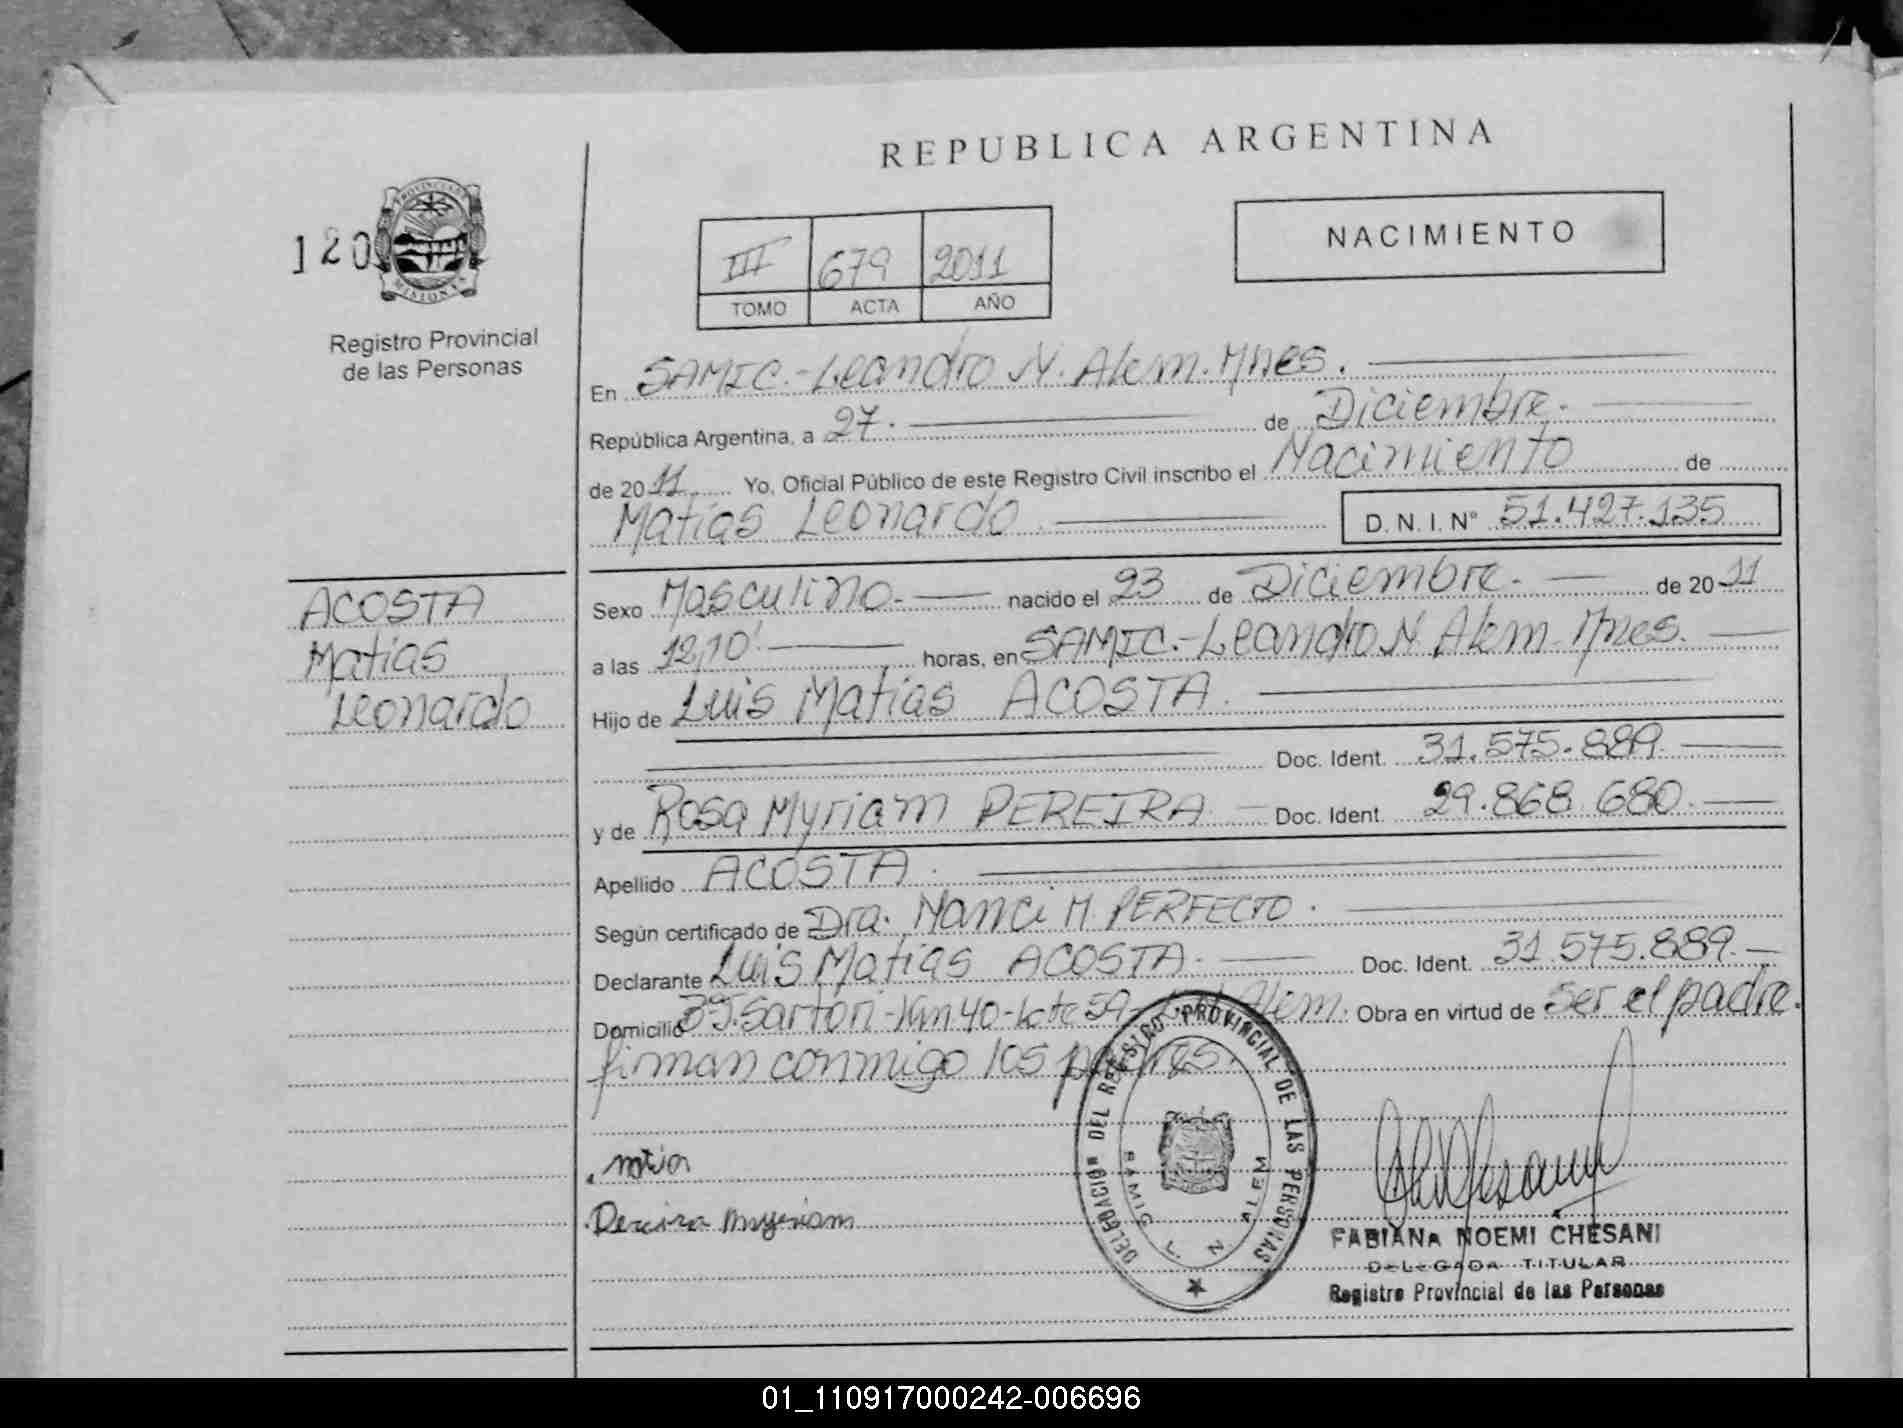 REPUBLICA ARGENTINA
120
PROVINCIA DE MISIONES
Registro Provincial
de las Personas
III 679 2011
TOMO ACTA AÑO
NACIMIENTO
En SAMIC.-Leandro N. Alem. Mnes.
República Argentina, a 27. de Diciembre.
de 2011 Yo, Oficial Público de este Registro Civil inscribo el Nacimiento de
Matías Leonardo. D. N. I. N° 51.427.135
ACOSTA
Matías
Leonardo
Sexo Masculino.- nacido el 23 de Diciembre. de 2011
a las 12,10'. horas, en SAMIC.-Leandro N. Alem-Mnes.
Hijo de Luis Matías ACOSTA.
Doc. Ident. 31.575.889.
y de Rosa Myriam PEREIRA. Doc. Ident. 29.868.680.
Apellido ACOSTA.
Según certificado de Dra. Nanci M. PERFECTO.
Declarante Luis Matías ACOSTA. Doc. Ident. 31.575.889.
Domicilio Sartori-Km 40-Lote 59- Alem. Obra en virtud de ser el padre.
firman conmigo los padres.
DELEGACION DEL REGISTRO PROVINCIAL DE LAS PERSONAS
SAMIC L. N. ALEM
Myriam
FABIANA NOEMI CHESANI
DELEGADA TITULAR
Registro Provincial de las Personas
01_110917000242-006696